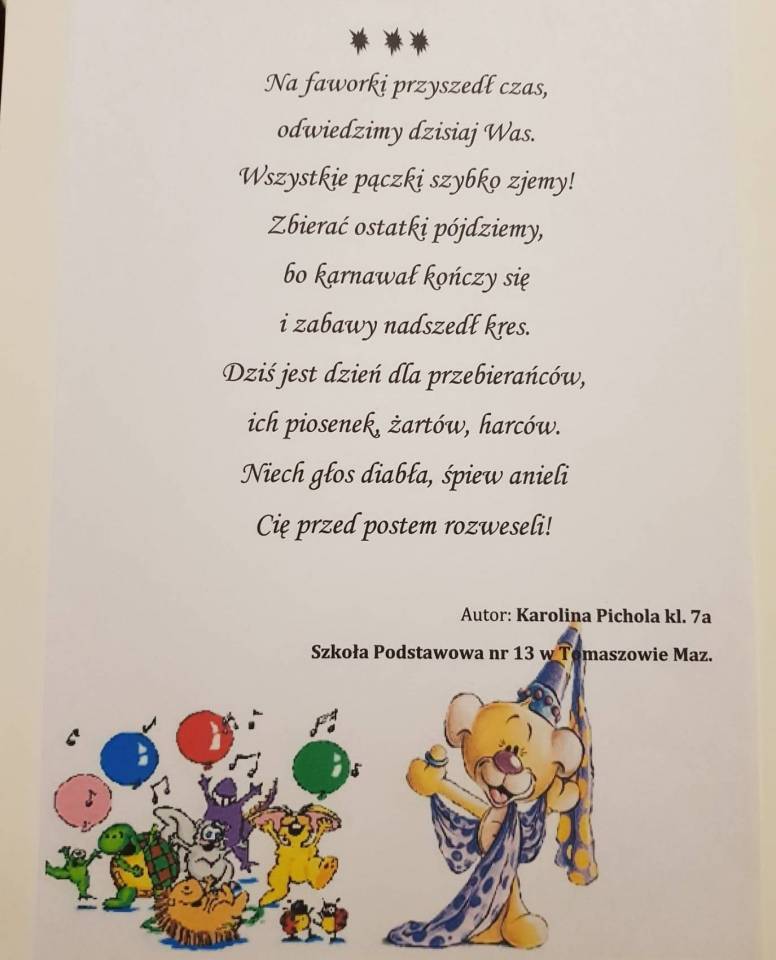 Na faworki przyszedł czas,
odwiedzimy dzisiaj Was.
Wszystkie pączki szybko zjemy!
Zbierać ostatki pójdziemy,
bo karnawał kończy się
i zabawy nadszedł kres.
Dziś jest dzień dla przebierańców,
ich piosenek, żartów, harców.
Niech głos diabła, śpiew anieli
Cię przed postem rozweseli!
Autor: Karolina Pichola kl. 7a
Szkoła Podstawowa nr 13 w Tomaszowie Maz.